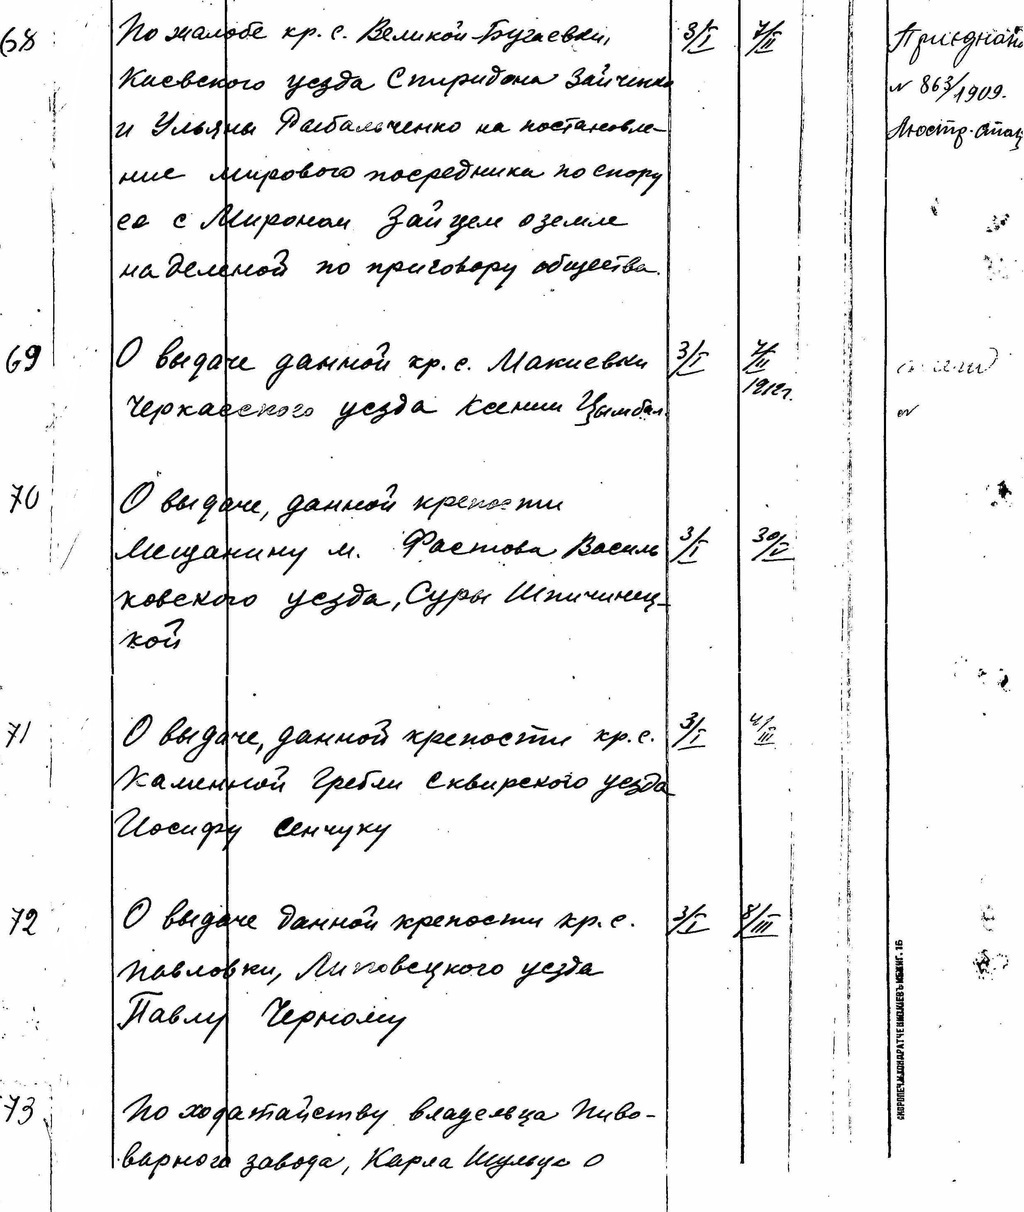 68 По жалобе кр. с. Великой-Бугаевки, 3/I 7/II
Киевского уезда Спиридона Зайченко № 863/1909.
и Ульяны Рыбальченко на постановле-
ние мирового посредника по спору
ее с Мироном Зайцем о земле
наделеной по приговору общества.
69 О выдаче данной кр. с. Макиевки 3/I 7/II
Черкасского уезда Ксении Цымбал 1912г.
70 О выдаче, данной крепости
мещанину м. Фастова Василь 3/I 30/V
ковского уезда, Суры Шпичинец-
кой
71 О выдаче, данной крепости кр. с. 3/I 4/III
Каменной Гребли Сквирского уезда
Иосифу Сенчуку
72 О выдаче данной крепости кр. с. 3/I 8/III
Павловки, Липовецкого уезда
Павлу Черному
73 По ходатайству владельца пиво-
варного завода, Карла Шульца о